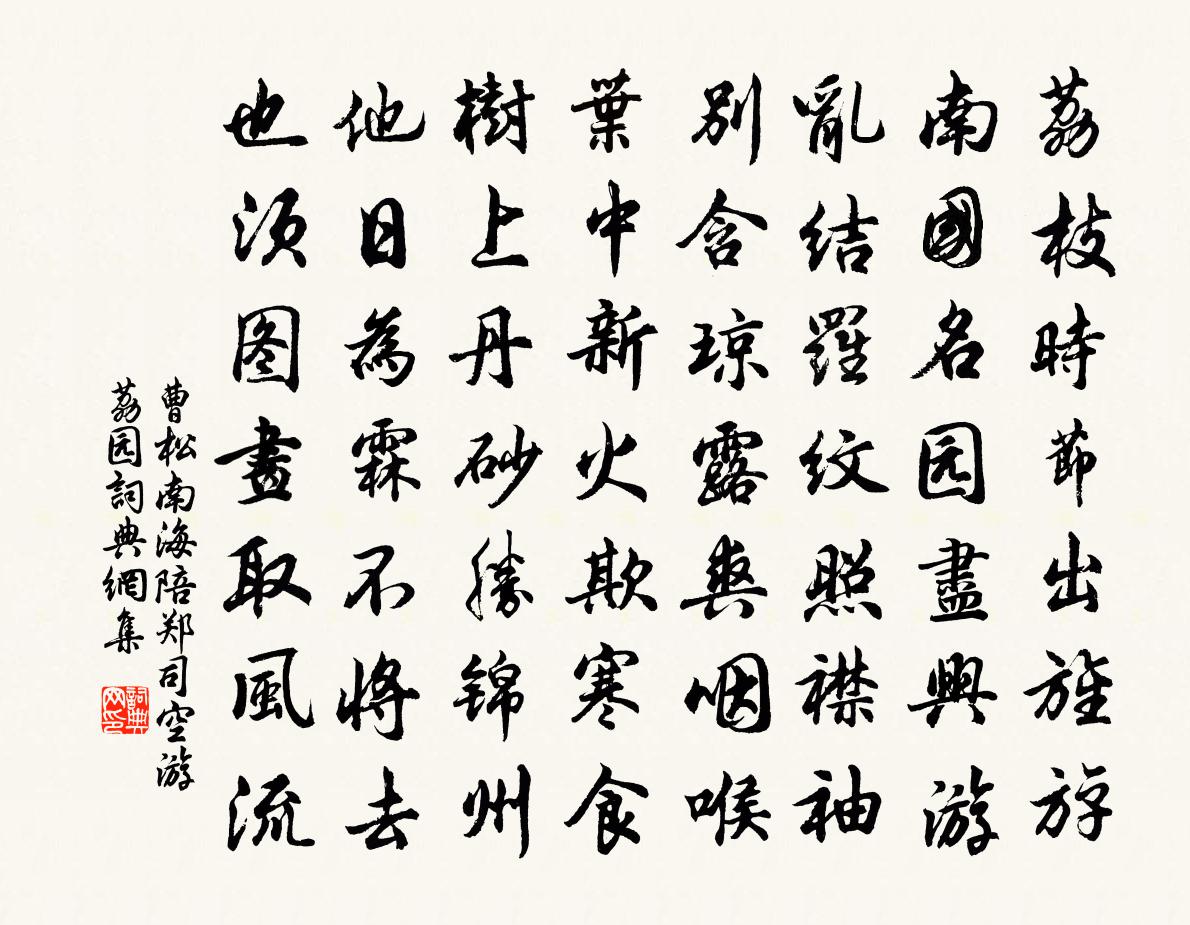 荔枝時節出旌斿
南國名园盡興游
亂結羅紋照襟袖
別含琼露爽咽喉
葉中新火欺寒食
樹上丹砂勝锦州
他日為霖不將去
也須图畫取風流
曹松南海陪郑司空游
荔园詞典網集
詞典网印